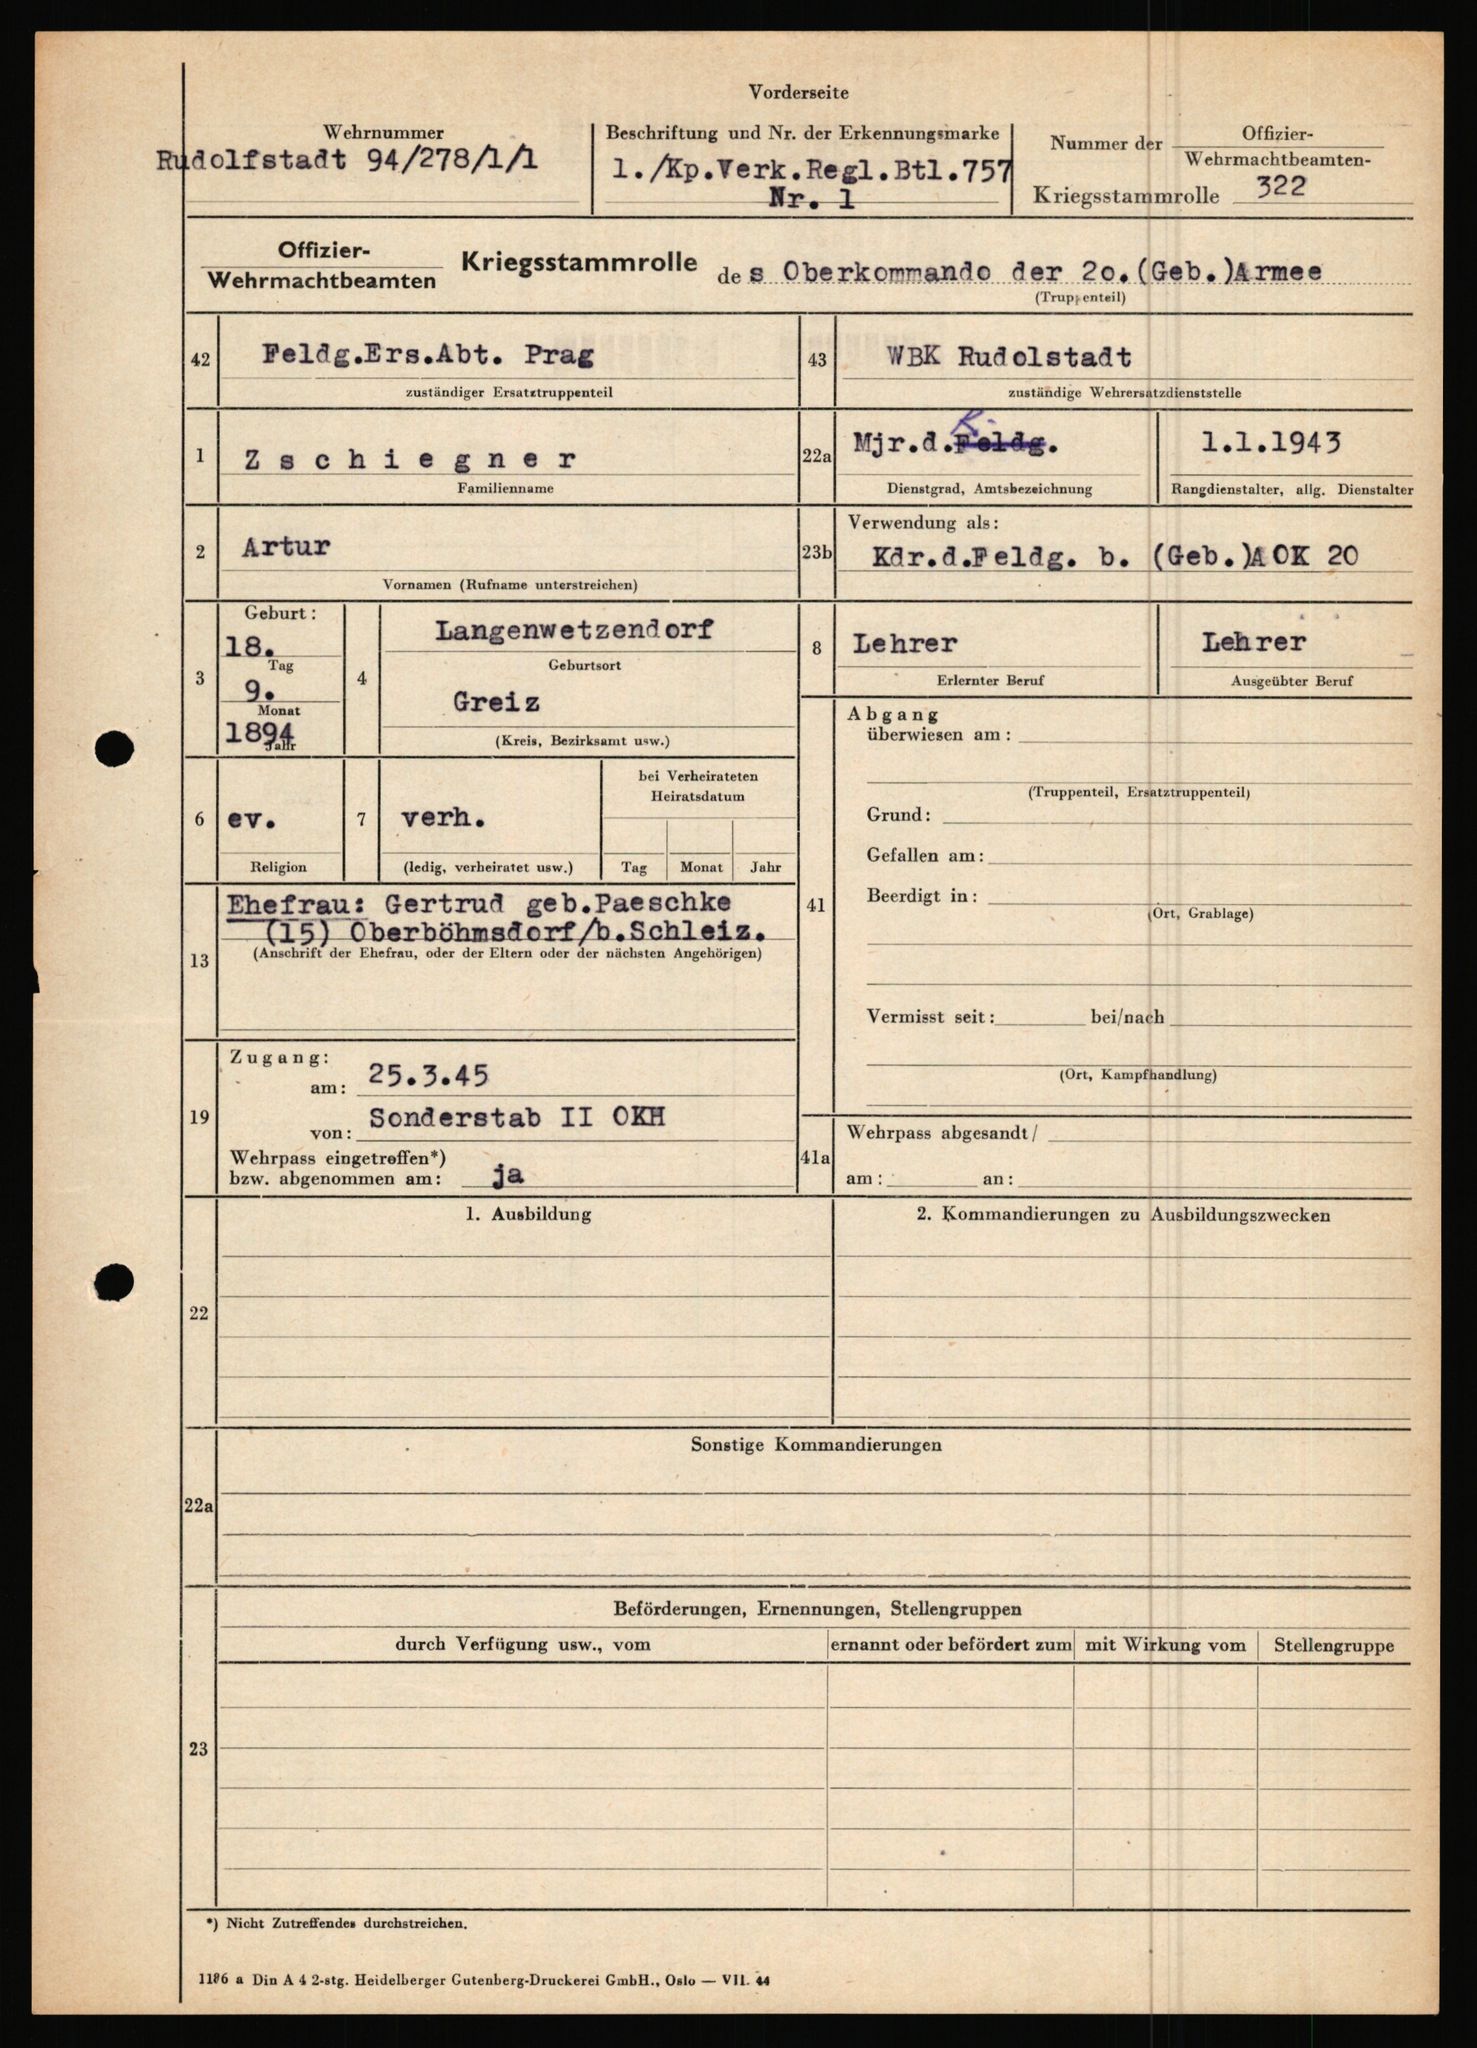 Vorderseite
Wehrnummer
Rudolfstadt 94/278/1/1
Beschriftung und Nr. der Erkennungsmarke
1./Kp.Verk.Regl.Btl.757
Nr. 1
Nummer der Offizier-
Wehrmachtbeamten-
Kriegsstammrolle 322
Offizier-
Wehrmachtbeamten
Kriegsstammrolle des Oberkommando der 2o.(Geb.)Armee
(Truppenteil)
42 Feldg.Ers.Abt. Prag
zuständiger Ersatztruppenteil
43 WBK Rudolstadt
zuständige Wehrersatzdienststelle
1 Zschiegner
Familienname
22a Mjr.d.Feldg. K.
Dienstgrad, Amtsbezeichnung
1.1.1943
Rangdienstalter, allg. Dienstalter
2 Artur
Vornamen (Rufname unterstreichen)
23b Verwendung als:
Kdr.d.Feldg. b. (Geb.)AOK 20
3 Geburt:
18.
Tag
9.
Monat
1894
Jahr
4 Langenwetzendorf
Geburtsort
Greiz
(Kreis, Bezirksamt usw.)
8 Lehrer
Erlernter Beruf
Lehrer
Ausgeübter Beruf
6 ev.
Religion
7 verh.
(ledig, verheiratet usw.)
bei Verheirateten
Heiratsdatum
Tag Monat Jahr
13 Ehefrau: Gertrud geb.Paeschke
(15) Oberböhmsdorf/b.Schleiz.
(Anschrift der Ehefrau, oder der Eltern oder der nächsten Angehörigen)
41 Abgang
überwiesen am:
(Truppenteil, Ersatztruppenteil)
Grund:
Gefallen am:
Beerdigt in:
(Ort, Grablage)
Vermisst seit: bei/nach
(Ort, Kampfhandlung)
19 Zugang:
am: 25.3.45
von: Sonderstab II OKH
Wehrpass eingetroffen*)
bzw. abgenommen am: ja
41a Wehrpass abgesandt/
am: an:
22 1. Ausbildung
2. Kommandierungen zu Ausbildungszwecken
22a Sonstige Kommandierungen
23 Beförderungen, Ernennungen, Stellengruppen
durch Verfügung usw., vom ernannt oder befördert zum mit Wirkung vom Stellengruppe
*) Nicht Zutreffendes durchstreichen.
1186 a Din A 4 2-stg. Heidelberger Gutenberg-Druckerei GmbH., Oslo — VII. 44